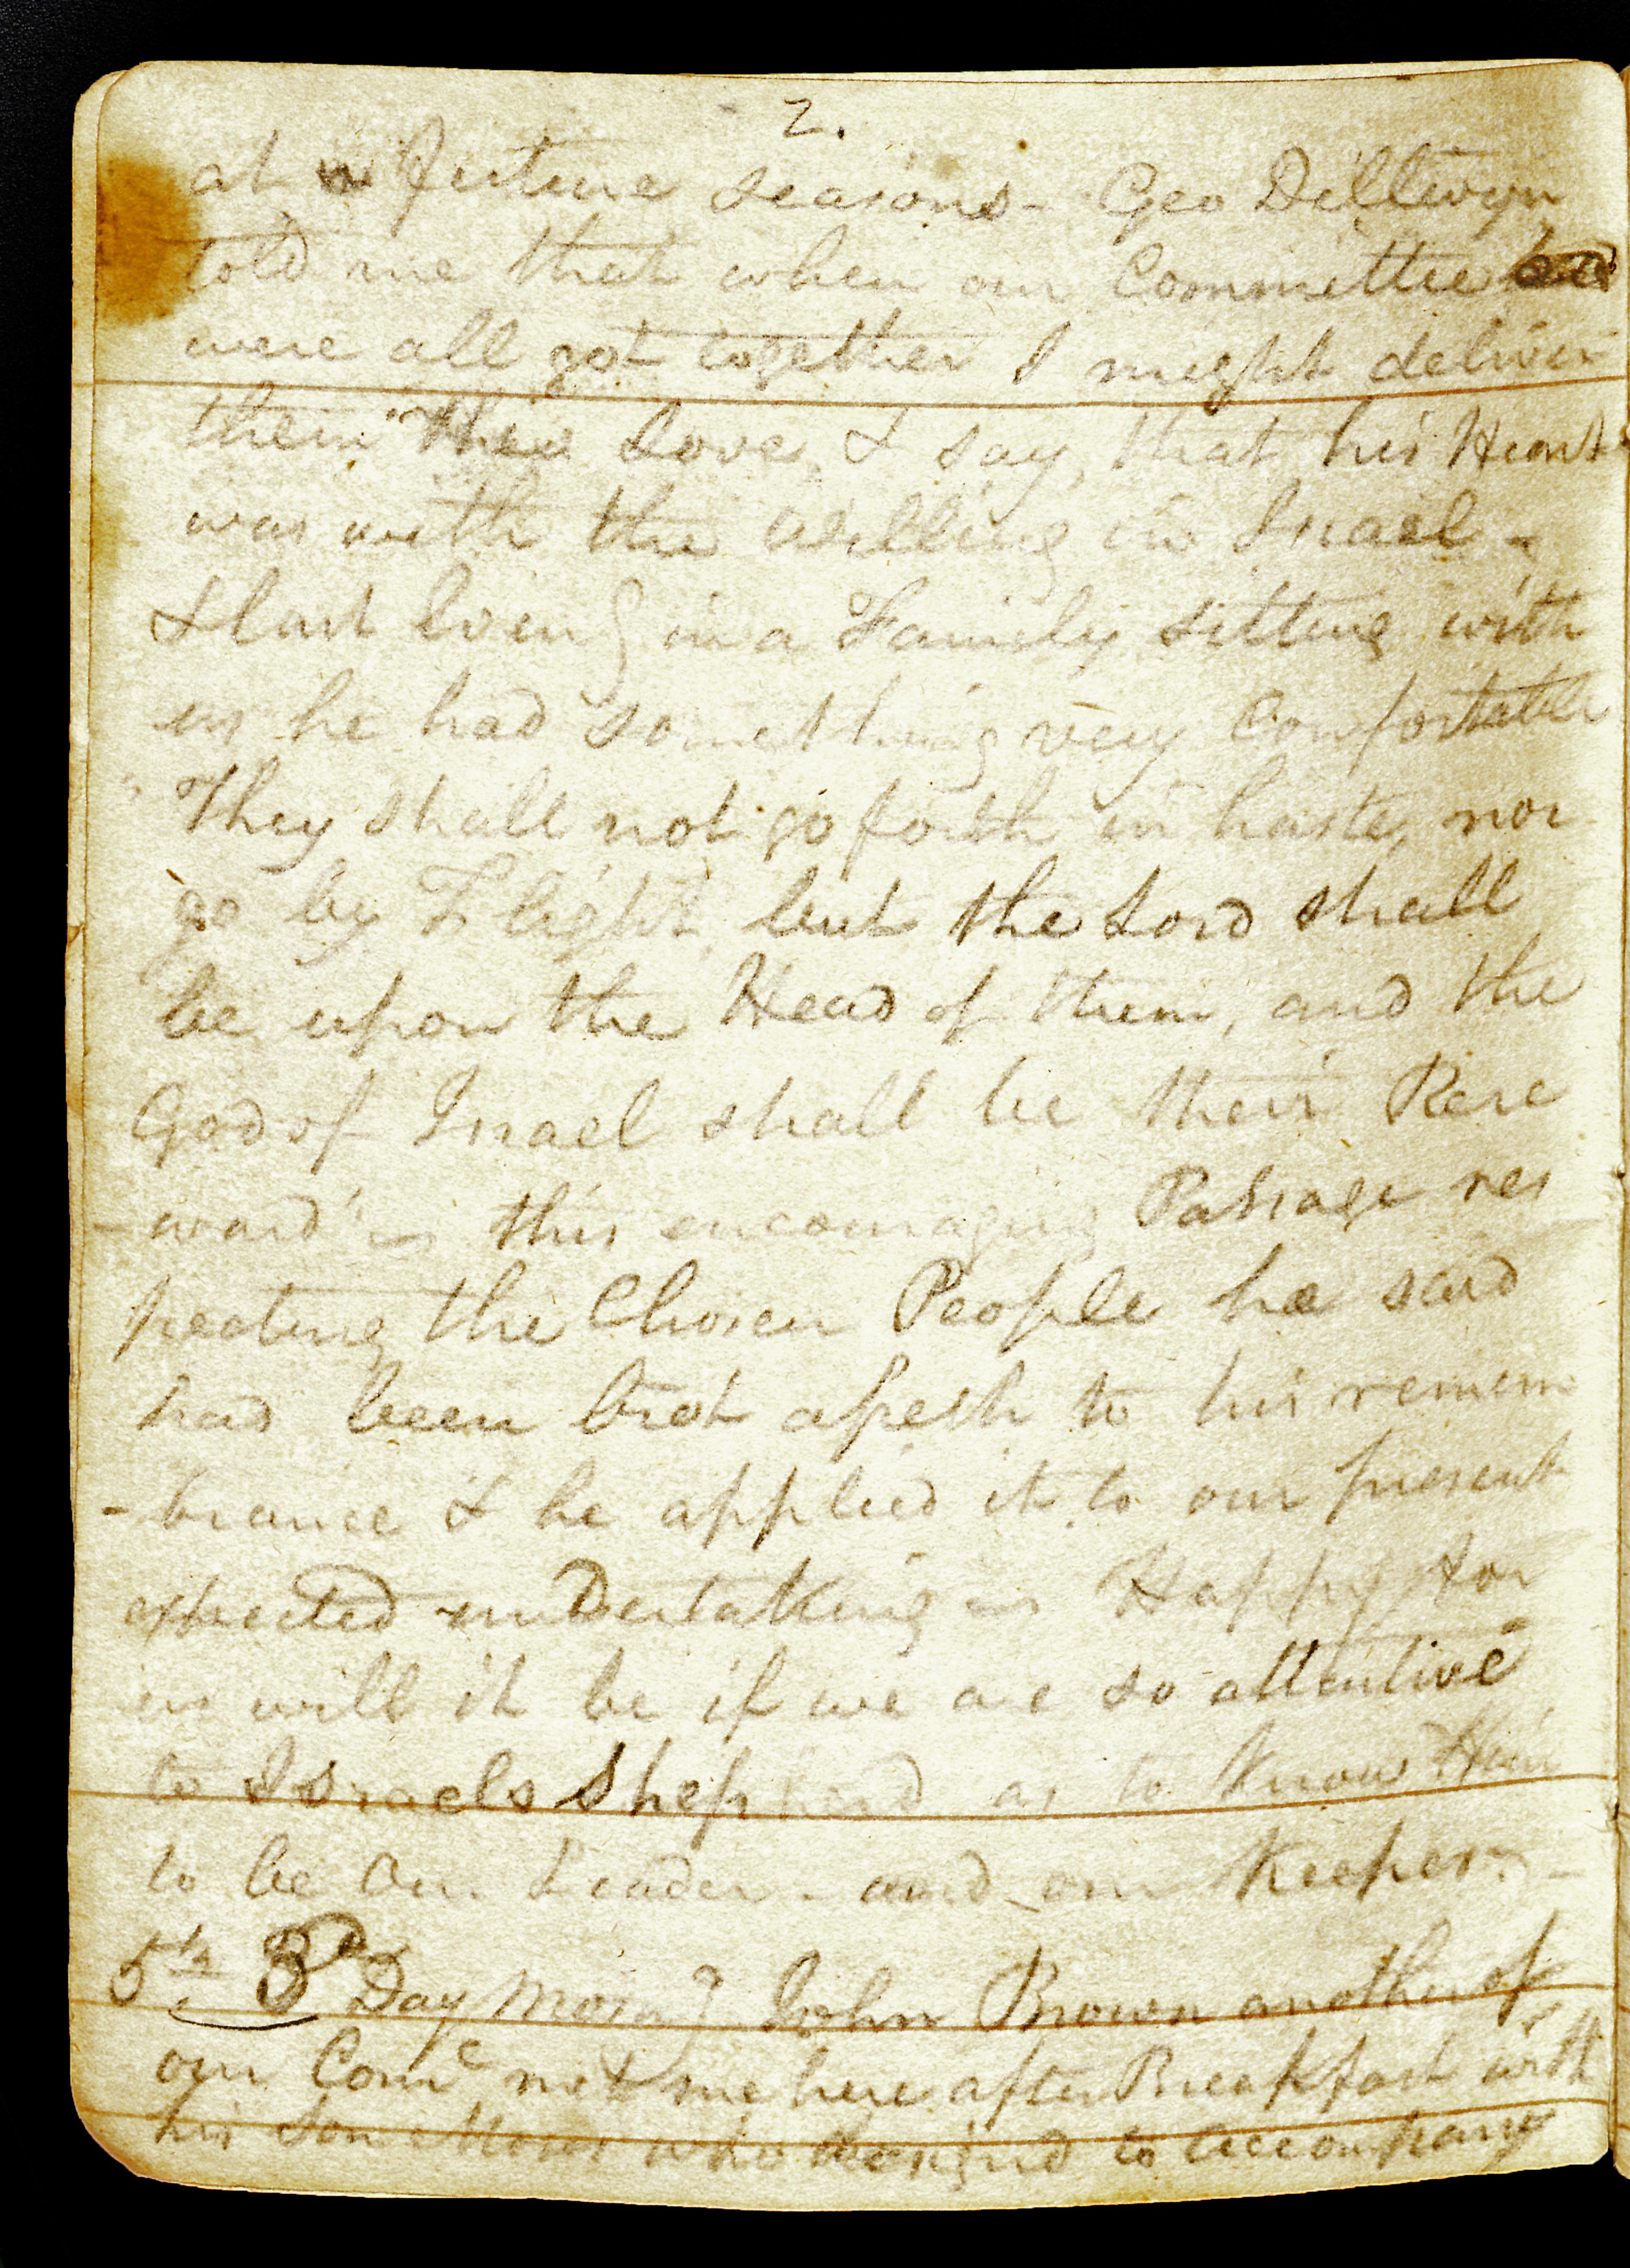 2.
at future seasons - Geo Dillwyn
told me that when our Committee
were all got together I might deliver
them His Love, & say, that his Heart
was with the willing in Israel -
& last Eveng in a Family sitting with
us he had something very Comfortable
"They shall not go forth in haste, nor
go by Flight, but the Lord shall
be upon the Head of them, and the
God of Israel shall be their Rere
-ward" - this encouraging Passage res
pecting the Chosen People he said
had been brot afresh to his remem
-brance & he applied it to our present
expected undertaking - Happy for
us will it be if we are so attentive
to Israels Shepherd as to know Him
to be Our Leader - and our Keeper. -
5th 3d Day Morng John Brown another of
our Come met me here after Breakfast with
his Son Moses who designd to accompany